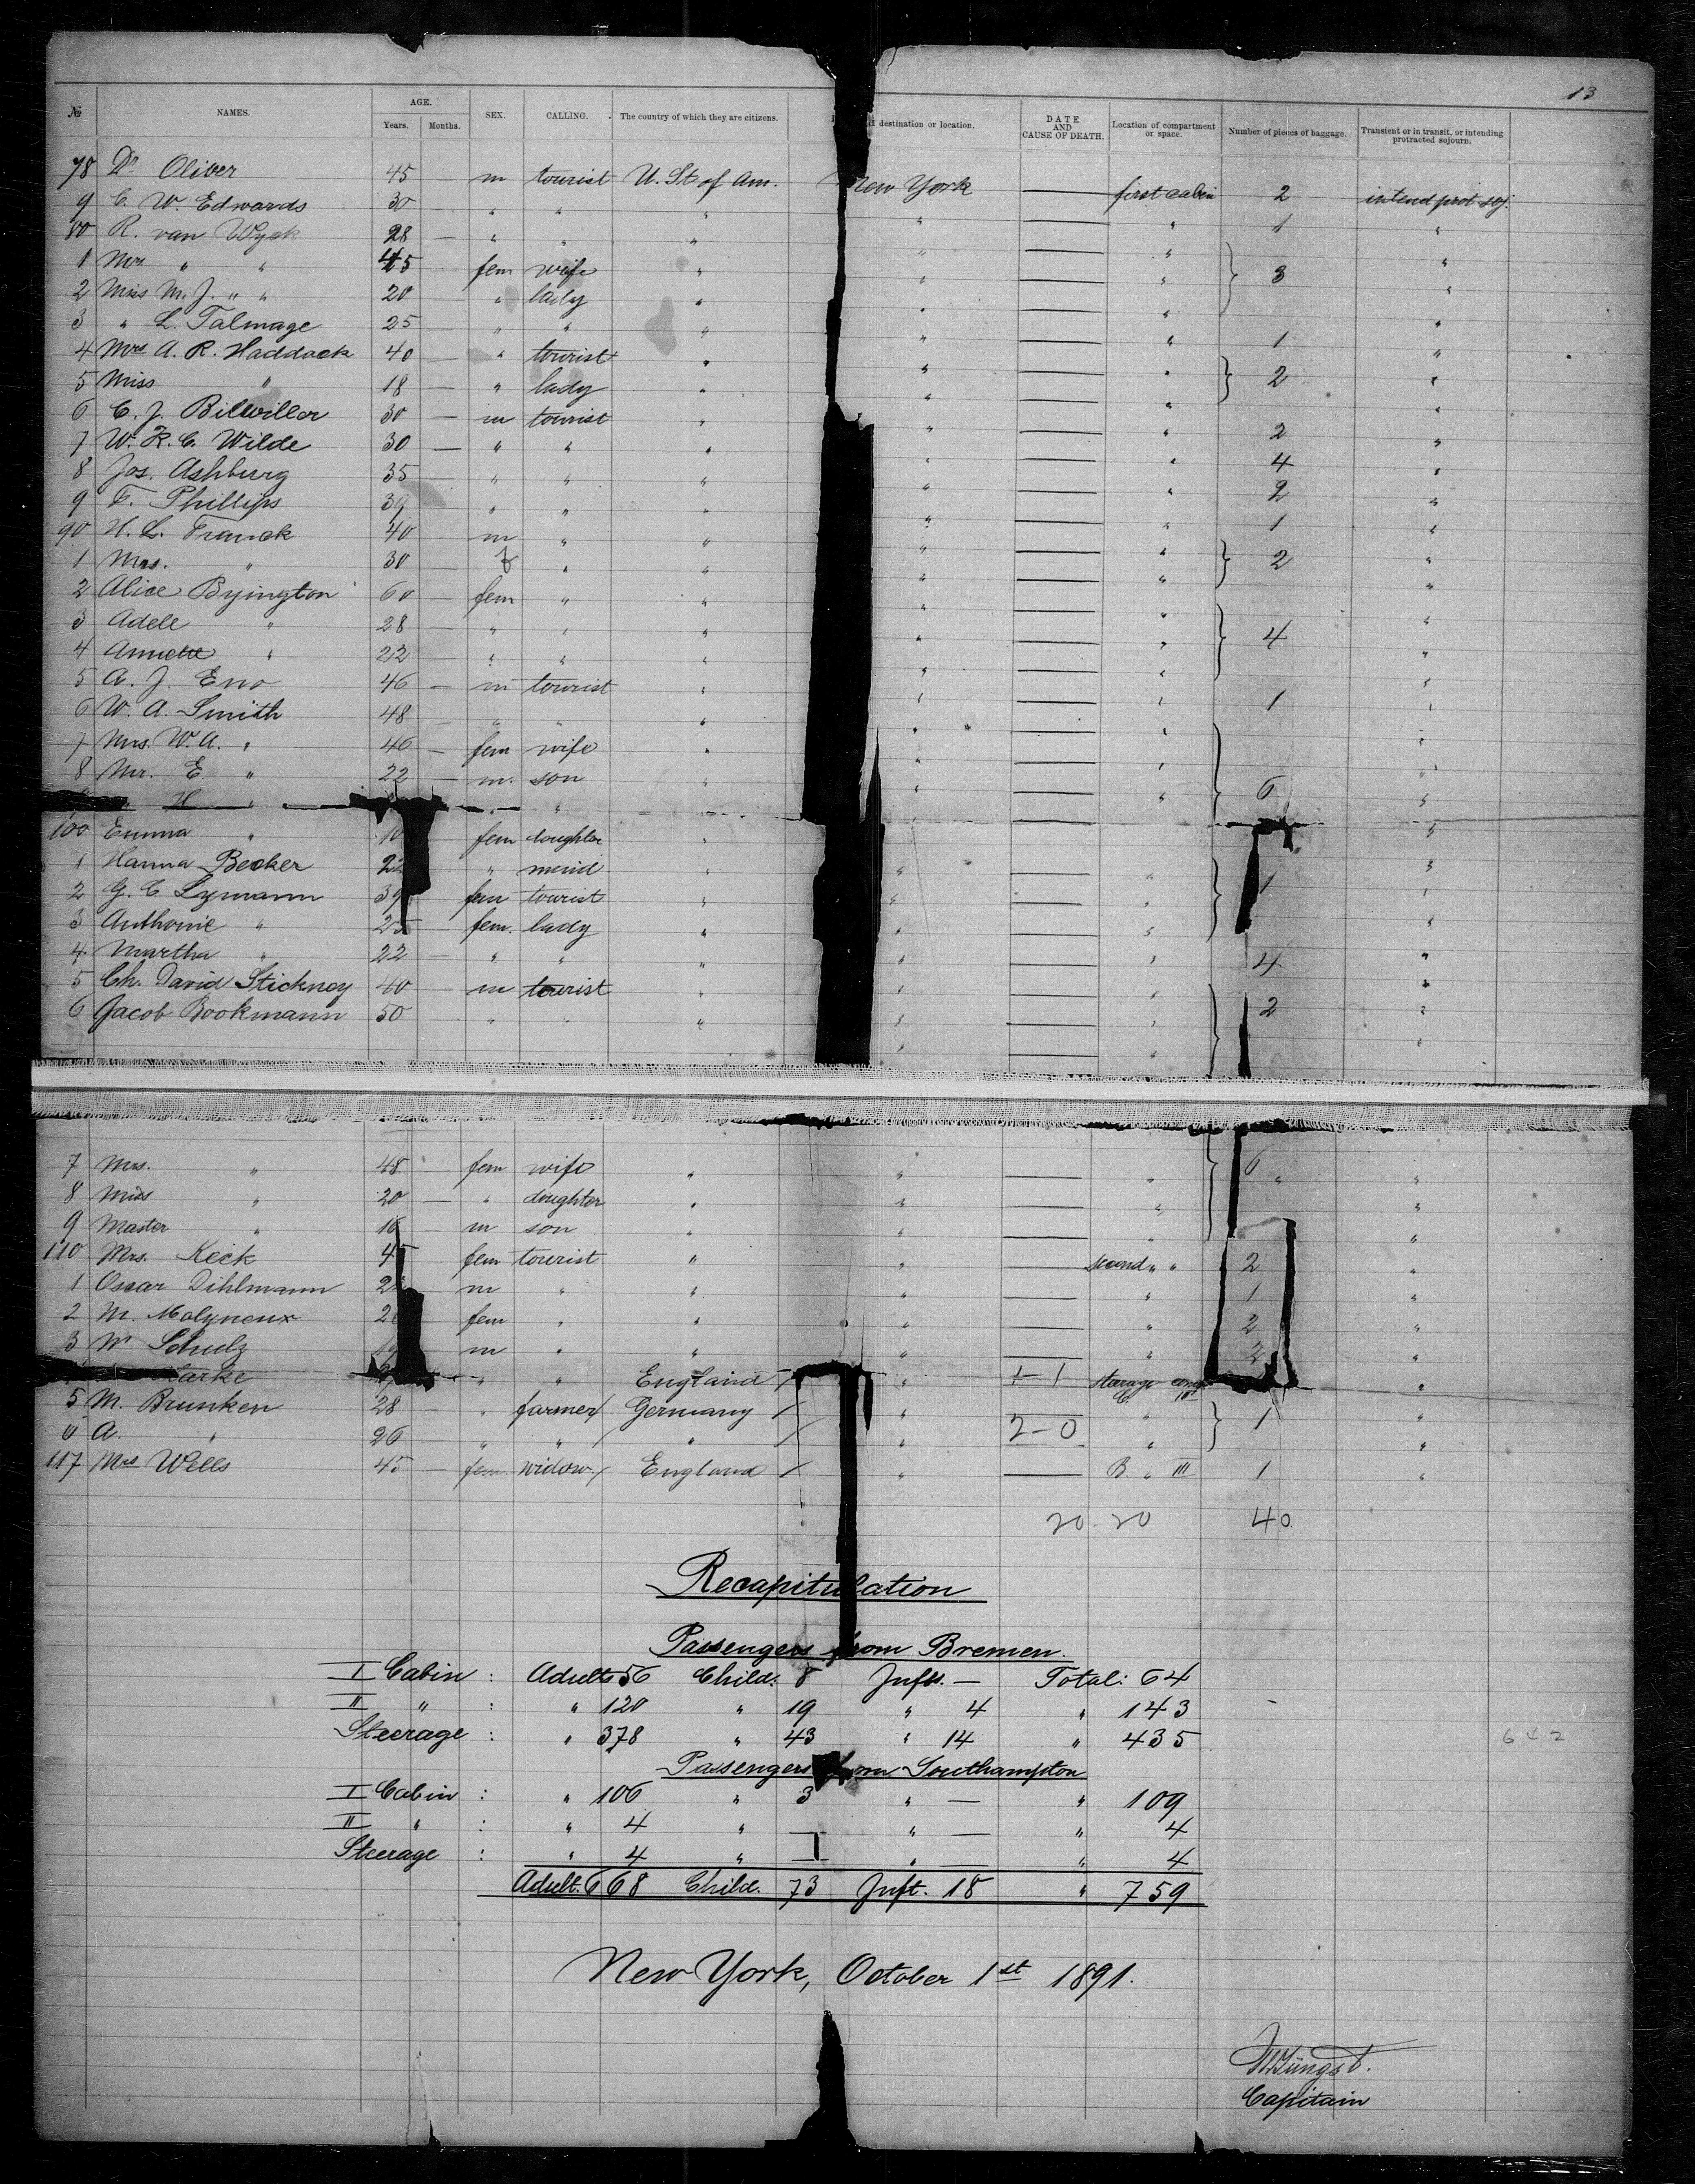 13
№ NAMES. AGE. Years. Months. SEX. CALLING. The country of which they are citizens. destination or location. DATE AND CAUSE OF DEATH. Location of compartment or space. Number of pieces of baggage. Transient or in transit, or intending protracted sojourn.
78 Dr Oliver 45 m tourist U. St of Am. New York — first cabin 2 intend prot soj.
9 C. W. Edwards 30 " " " " — " 1 "
80 R. van Wyck 28 — " " " " — " "
1 Mrs " " 45 fem wife " " — " 3 "
2 Miss M. J. " " 20 " lady " " — " "
3 " L. Talmage 25 " " " " — " 1 "
4 Mrs A. R. Haddock 40 — " tourist " " — " 2 "
5 Miss " 18 — " lady " " — " "
6 C. J. Billwiller 30 — m tourist " " — " 2 "
7 W. R. C. Wilde 30 — " " " " — " 4 "
8 Jos. Ashburg 35 — " " " " — " 2 "
9 F. Phillips 39 " " " " — " 1 "
90 H. L. Franck 40 m " " " — " 2 "
1 Mrs. " 30 f " " " — " "
2 Alice Byington 60 — fem " " " — " 4 "
3 Adele " 28 — " " " " — " "
4 Annette " 22 — " " " " — " "
5 A. J. Eno 46 — m tourist " " — " 1 "
6 W. A. Smith 48 " " " " — " "
7 Mrs. W. A. " 46 — fem wife " " — " "
8 Mr. E. " 22 — m. son " " — " 6 "
" H " " " —
100 Emma " fem doughter " — "
1 Hanna Becker 22 " meid " " — " 1 "
2 G. C. Lymann 39 fem tourist " " — " "
3 Anthonie " 25 fem. lady " " — " "
4 Martha " 22 " " " " — " 4 "
5 Ch. David Stickney 40 m tourist " " — " 2 "
6 Jacob Bookmann 50 " " " " — " "
7 Mrs. " 48 — fem wife " " — " 6 "
8 Miss " 20 — " doughter " " — " "
9 Master " 16 m son " " — " "
110 Mrs. Keck 45 fem tourist " " — second " " 2 "
1 Oscar Dihlmann m " " " — " 1 "
2 M. Molyneux fem " " " — " 2 "
3 Wm Schulz m " " " — " 2 "
" " England / " 1-1 steerage "
5 M. Brunken 28 — " farmer / Germany / " C. " 1 "
6 A. " 26 " " / " / " 2-0 " "
117 Mrs Wells 45 — fem. widow / England / " — B. " III 1 "
20-20 40
Recapitulation
Passengers from Bremen.
I Cabin : Adult 56 Child: 8 Juft. — Total: 64
II " : " 120 " 19 " 4 " 143
Steerage : " 378 " 43 " 14 " 435
642
Passengers from Southampton
I Cabin : " 106 " 3 " — " 109
II " : " 4 " — " — " 4
Steerage : " 4 " — " — " 4
Adult. 668 Child. 73 Juft. 18 " 759
New York, October 1st 1891.
Jüngst.
Capitain